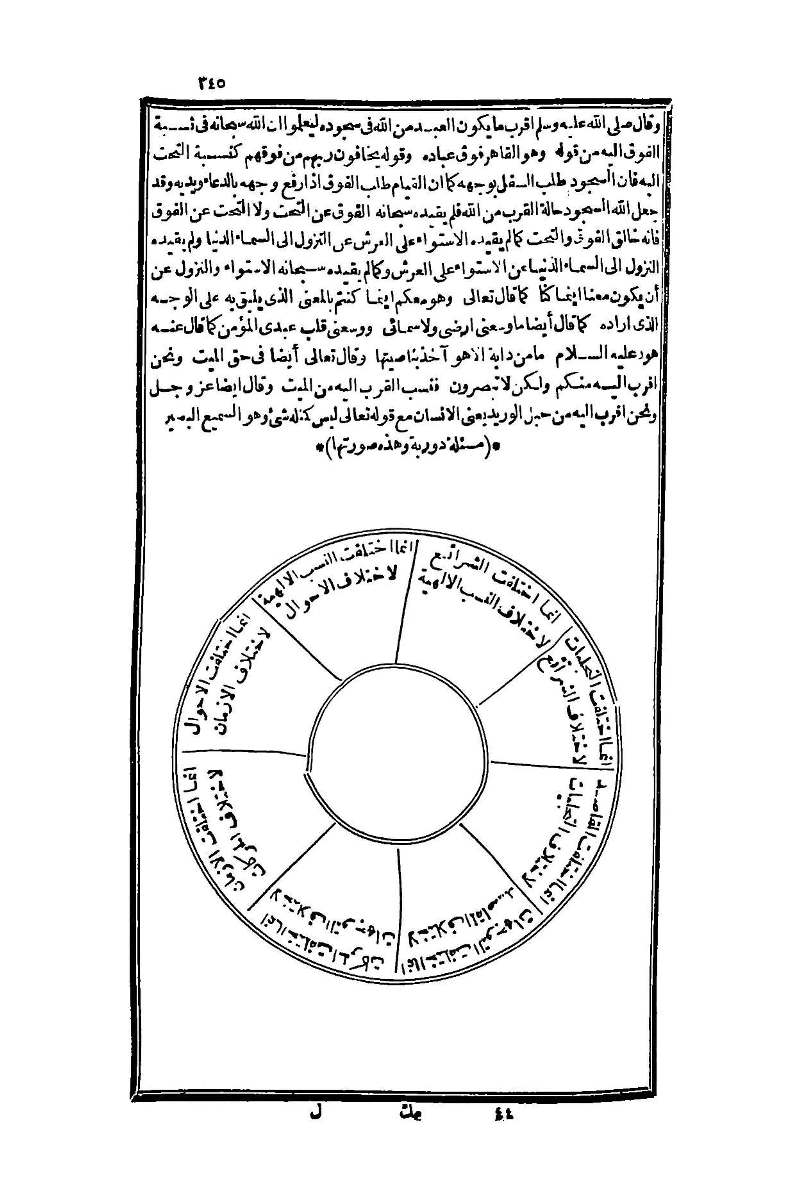 ٣٤٥
وقال صلى الله عليه وسلم اقرب ما يكون العبد من الله فى سجوده ليعلموا ان الله سبحانه فى نسبة
الفوق اليه من قوله وهو القاهر فوق عباده وقوله يخافون ربهم من فوقهم كنسبة التحت
اليه فان السجود طلب السفل بوجهه كما ان القيام طلب الفوق اذا رفع وجهه بالدعاء ويديه وقد
جعل الله السجود حالة القرب من الله فلم يقيده سبحانه الفوق عن التحت ولا التحت عن الفوق
فانه خالق الفوق والتحت كما لم يقيده الاستواء على العرش عن النزول الى السماء الدنيا ولم يقيده
النزول الى السماء الدنيا عن الاستواء على العرش وكما لم يقيده سبحانه الاستواء والنزول عن
أن يكون معنا اينما كنا كما قال تعالى وهو معكم اينما كنتم بالمعنى الذى يليق به على الوجه
الذى اراده كما قال أيضا ما وسعنى ارضى ولا سمائى ووسعنى قلب عبدى المؤمن كما قال عنه
هود عليه السلام ما من دابة الا هو آخذ بناصيتها وقال تعالى أيضا فى حق الميت ونحن
اقرب اليه منكم ولكن لا تبصرون فنسب القرب اليه من الميت وقال ايضا عز وجل
ونحن اقرب اليه من حبل الوريد يعنى الانسان مع قوله تعالى ليس كمثله شئ وهو السميع البصير
*(مسئلة دورية وهذه صورتها)*
انما اختلفت الشرائع
لاختلاف النسب الالهية
انما اختلفت النسب الالهية
لاختلاف الاحوال
انما اختلفت الاحوال
لاختلاف الازمان
انما اختلفت الازمان
لاختلاف الحركات
انما اختلفت الحركات
لاختلاف التوجهات
انما اختلفت التوجهات
لاختلاف المقاصد
انما اختلفت المقاصد
لاختلاف التجليات
انما اختلفت التجليات
لاختلاف الشرائع
٤٤ مك ل